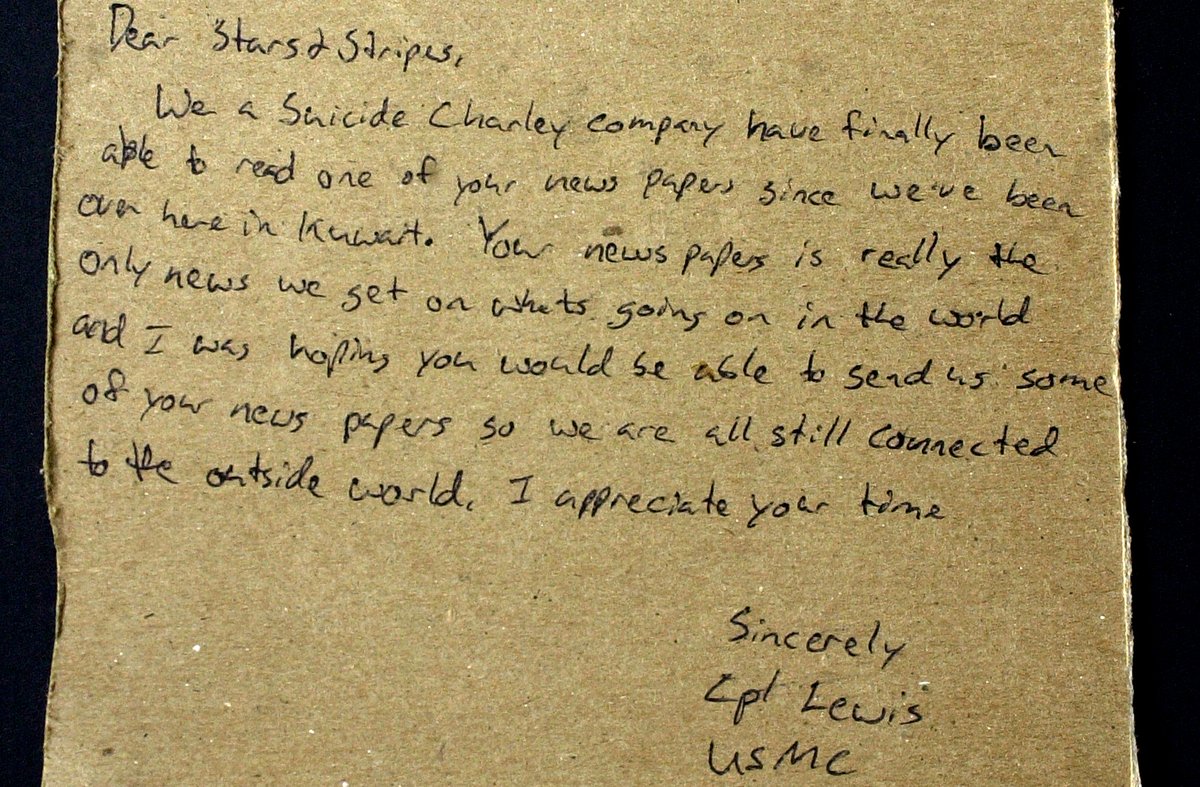 Dear Stars & Stripes,
We a Suicide Charley company have finally been
able to read one of your news papers since we've been
over here in Kuwait. Your news papers is really the
only news we get on whats going on in the world
and I was hoping you would be able to send us some
of your news papers so we are all still connected
to the outside world. I appreciate your time
Sincerely
Cpl Lewis
USMC